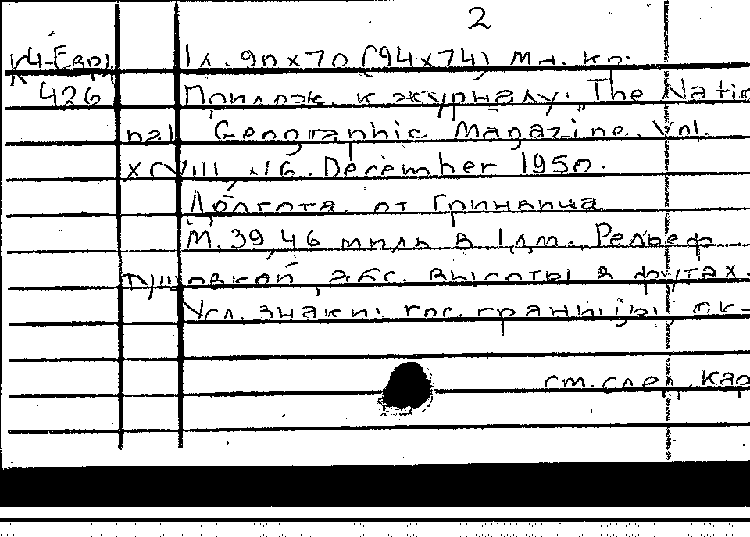 2
К4-Евр. 1л. 90х70 (94х74) мн. кр.
426 Прилож. к журналу: The Natio
nal Geographic Magazine. Vol.
XCVIII, №6. December 1950.
Долгота от Гринвича
М. 39,46 миль в 1 дм. Рельеф
отмывкой, абс. высоты в футах.
Усл. знаки: гос. границы, ок-
см. след. кар